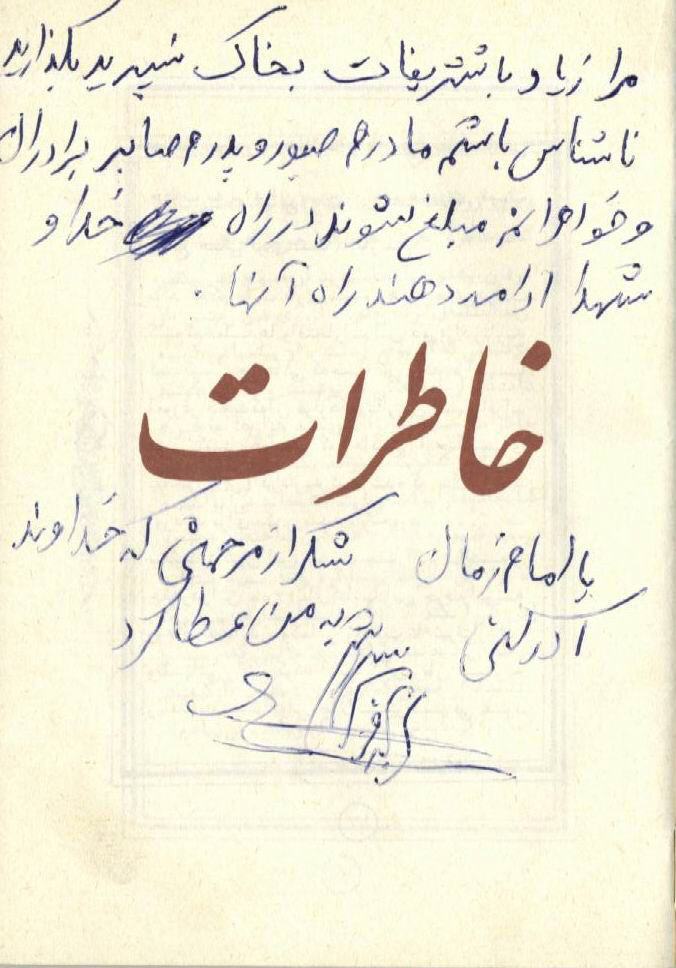 مرا زیاد با تشریفات بخاک نسپرید بگذارید
ناشناس باشم مادرم صبور و پدرم صابر برادران
و خواهرانم مبلغ شوند در راه خدا و
شهدا ادامه دهند راه آنها.
خاطرات
یا امام زمان شکر از مرحمتی که خداوند
به من عطا کرد